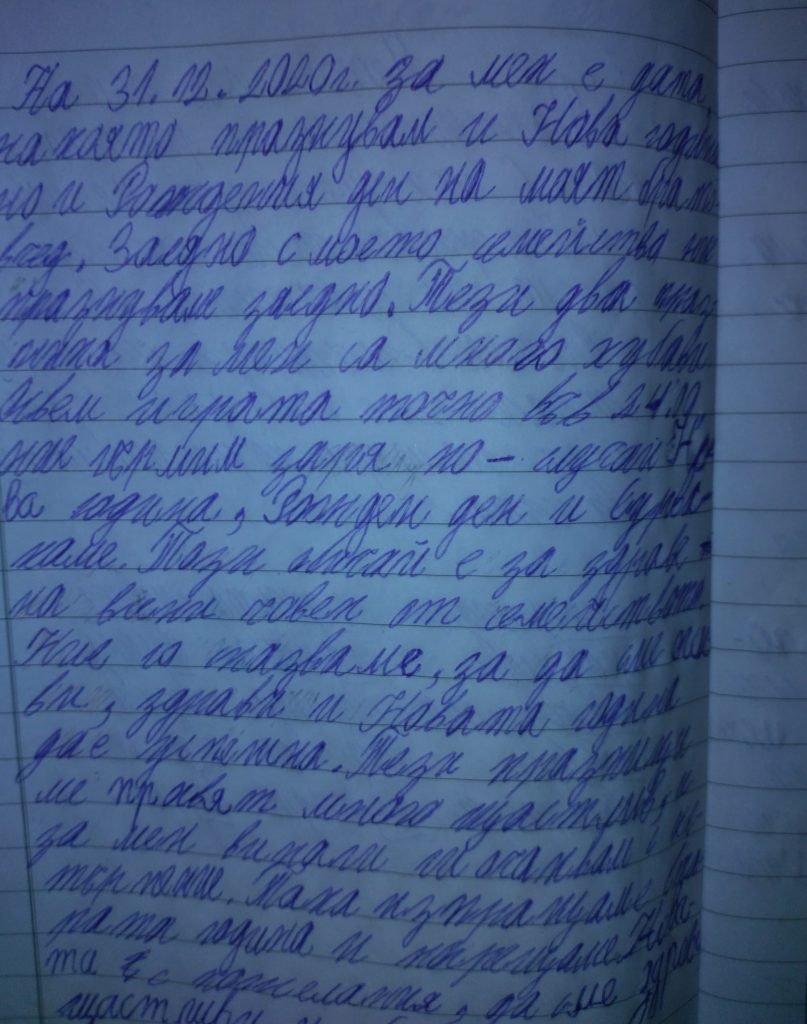 На 31.12.2020г. за мен е дата
на която празнувам и Нова година
но и Рождения ден на моят брато-
вчед. Заедно с моето семейство ние
празнувам заедно. Тези два праз
ника за мен са много хубави
точно във 24:00
ние гърмим заря по-случай Но-
ва година, Рожден ден и
Този обичай е за здраве
на всеки човек от семейството.
Ние го пазваме, за да сме жи-
ви, здрави и Новата година
да е успешна. Тези празници
ме правят много щастлив, и
за мен винаги ги очаквам с не-
търпение. Така изпращаме ста-
рата година и посрещаме Нова-
та с пожелания, да сме здрави
щастливи